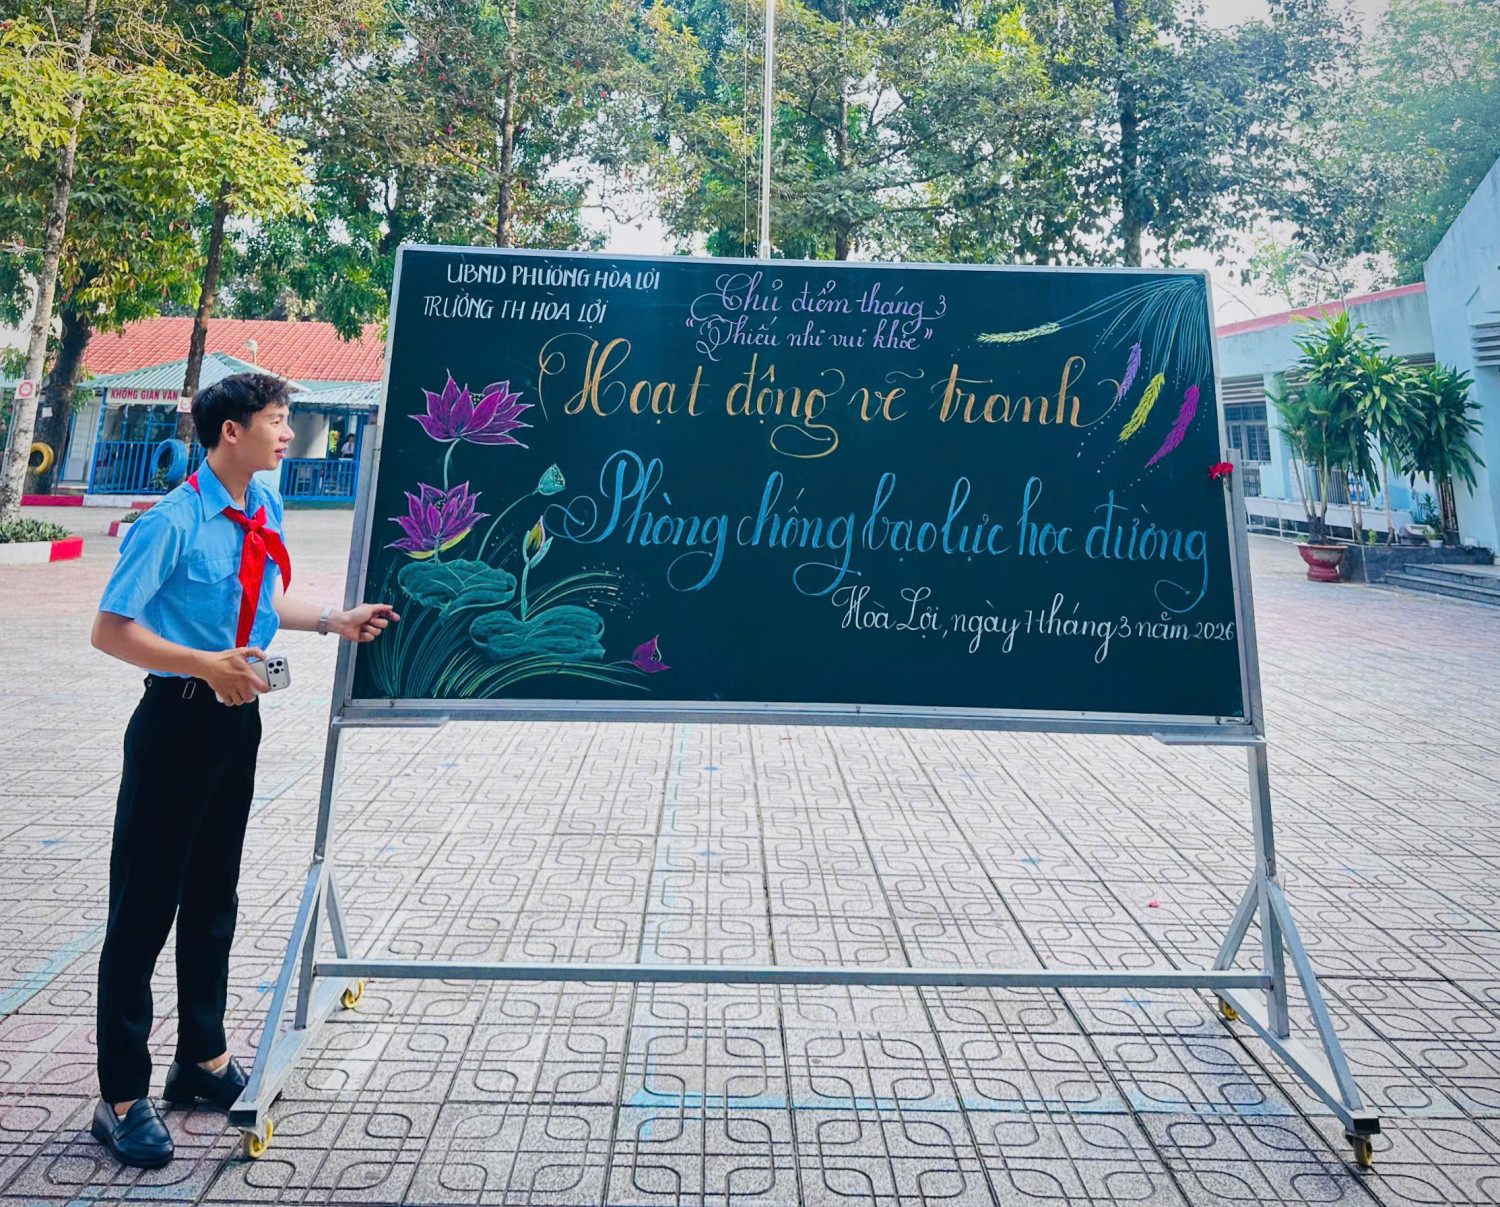 UBND PHƯỜNG HÒA LỢI
TRƯỜNG TH HÒA LỢI
Chủ điểm tháng 3
"Thiếu nhi vui khỏe"
Hoạt động vẽ tranh
Phòng chống bạo lực học đường
Hoà Lợi, ngày 7 tháng 3 năm 2026
KHÔNG GIAN VĂN